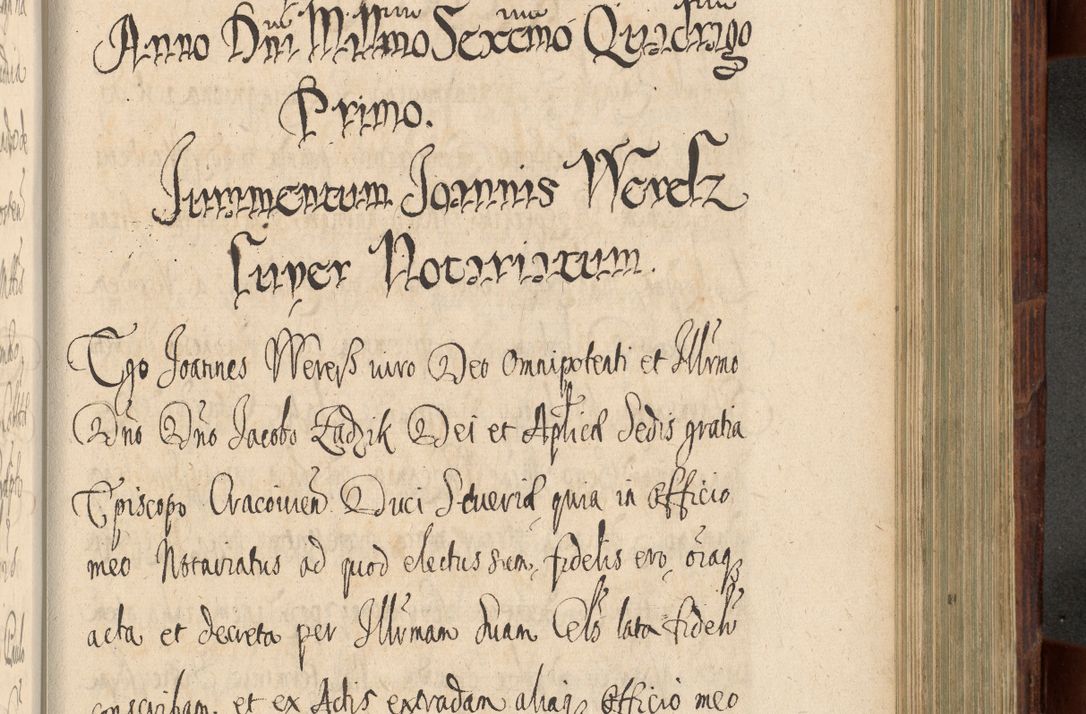 Anno Dni Millmo Sexcmo Qudrago
Primo.
Jurmentum Joannis Weresz
Super Notariatum.
Ego Joannes Weresz iuro Deo omnipotenti et Illrmo
Dno Dno Jacobo Zadzik Dei et Aplicæ Sedis gratia
Episcopo Cracovien Duci Severiæ, quia in Officio
meo Notariatus ad quod electus sum, fidelis ero, oiaq3
acta et decreta per Illrmam Suam Cels lata fideliter
conscribam, et ex Actis extradam aliaq3 Officio meo